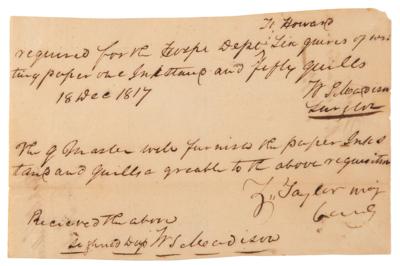 Ft Howard
required for the Hospl Dept Six quires of wri
ting paper one Inkstand and fifty quills
18 Dec 1817
W S Madison
Surgeon
The q Master will furnish the paper Inks
tand and quills agreable to the above requisition
Z. Taylor maj
Comdg
Recieved the above
Signed Dup W S Madison